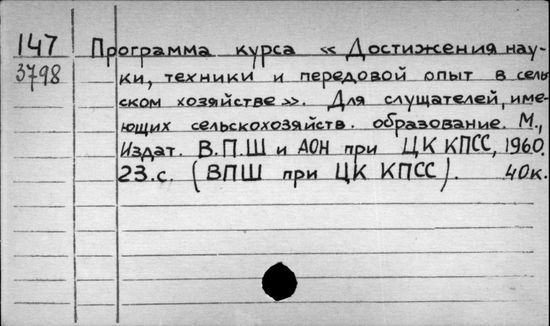 147 Программа курса « Достижения нау-
3798 ки, техники и передовой опыт в сель
ском хозяйстве ». Для слушателей, име-
ющих сельскохозяйств. образование. М.,
Издат. В.П.Ш и АОН при ЦК КПСС, 1960.
23.с. ( ВПШ при ЦК КПСС ). 40к.